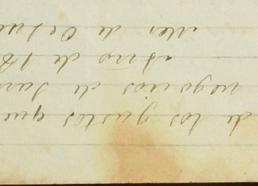 de los gastos que
negocios de
año de 18
de Octu